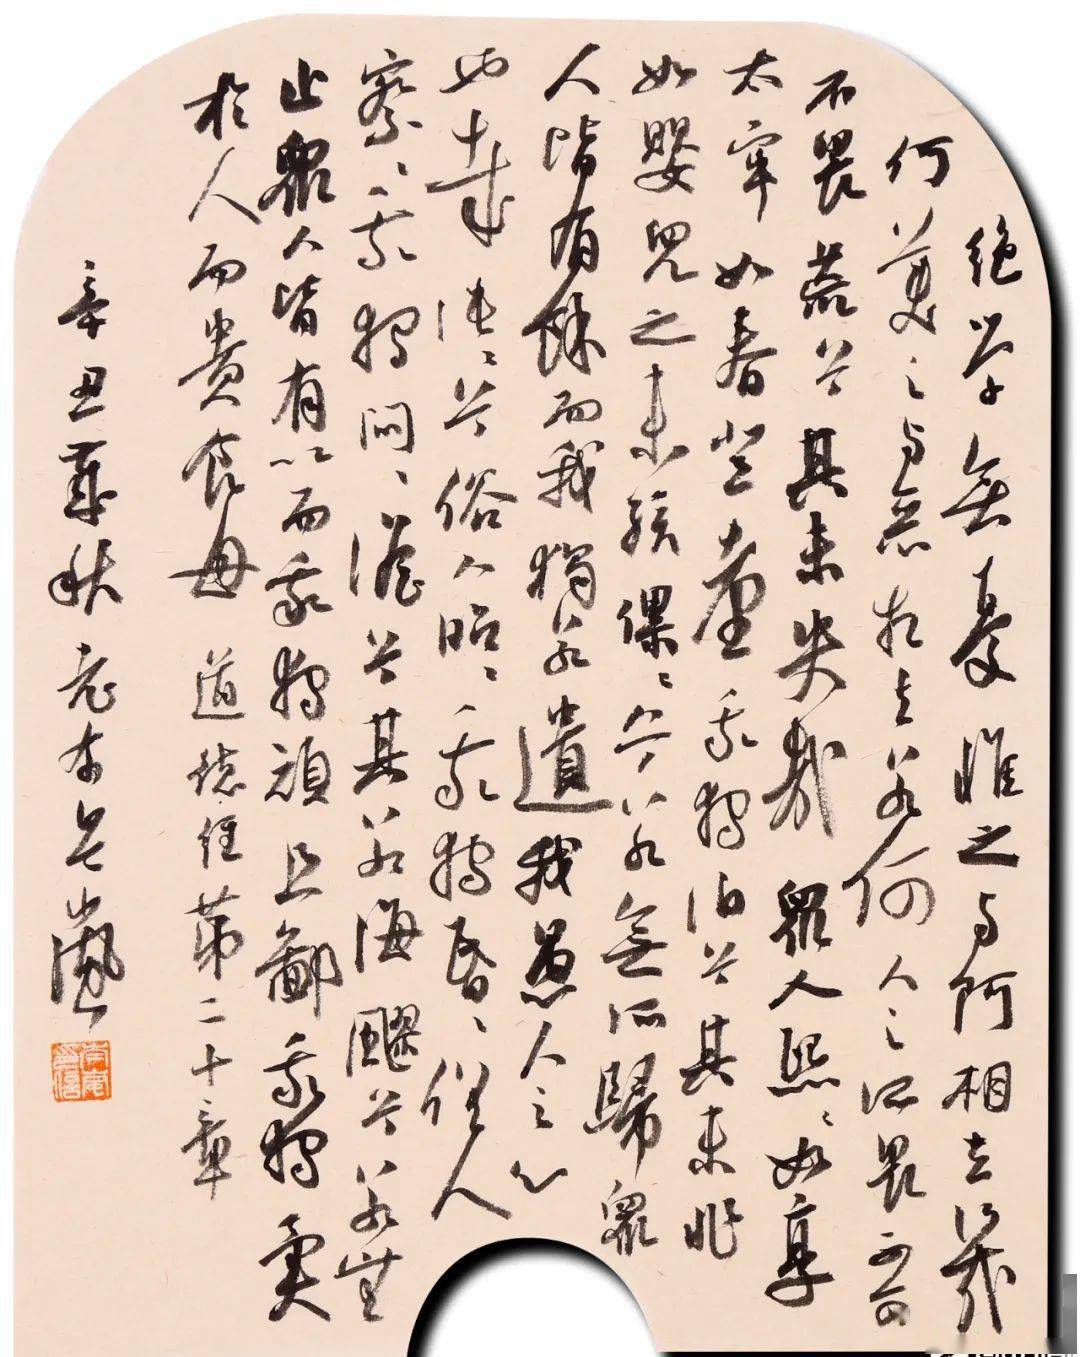 絕學無憂惟之与阿相去幾
何美之与惡相去若何人之所畏不可
不畏荒兮其未央哉眾人熙熙如享
太牢如春登臺我獨泊兮其未兆
如嬰兒之未孩傫傫兮若無所歸眾
人皆有餘而我獨若遺我愚人之心
也哉沌沌兮俗人昭昭我獨昏昏俗人
察察我獨悶悶澹兮其若海飂兮若無
止眾人皆有以而我獨頑且鄙我獨異
於人而貴食母道德經第二十章
辛丑肇秋